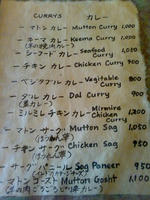 CURRYS カレー
マトン カレー Mutton Curry 1,000
キーマ カレー Keema Curry 1,000
シーフード カレー Seafood Curry 1,050
チキン カレー Chicken Curry 900
ベジタブル カレー Vegitable Curry 800
ダル カレー Dal Curry 900
(豆カレー)
ミルミレ チキンカレー Mirmire Chicken Curry 1,200
マトン サーグ Mutton Sag 1,050
(ほうれん草)
チキン サーグ Chicken Sag 950
(ほうれん草)
サーグ パニール Sag Paneer 950
マトン ゴースト Mutton Gosht 1,100